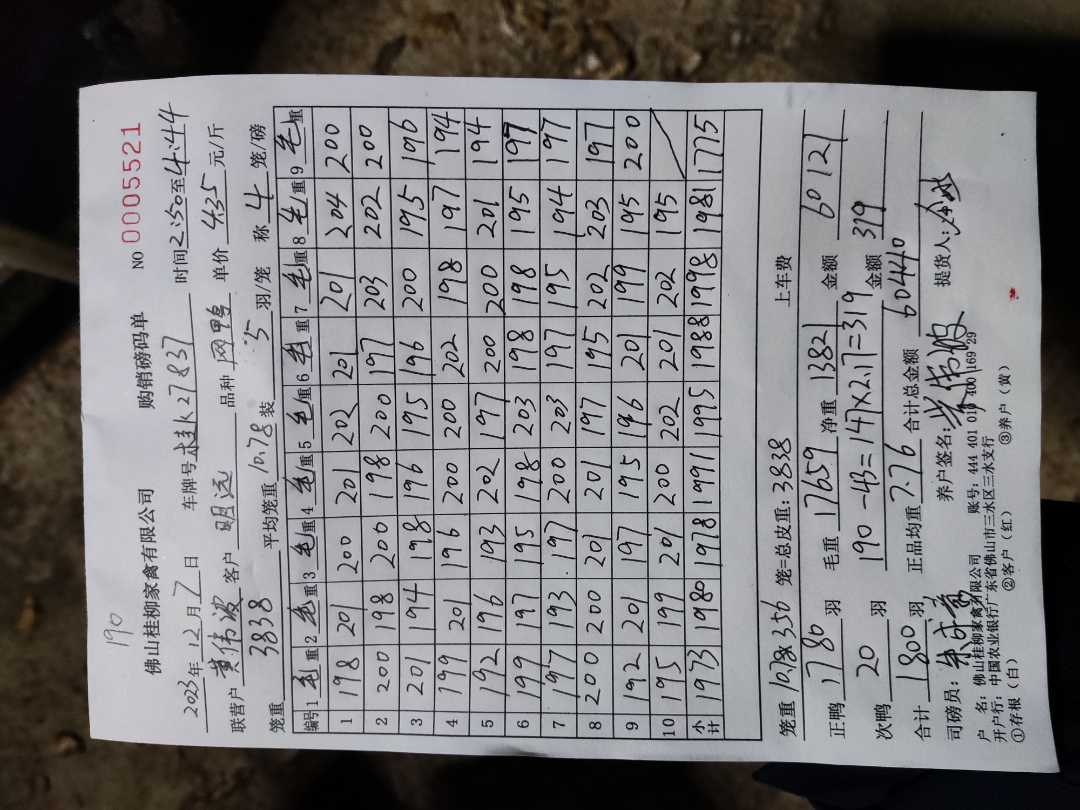 190
佛山桂柳家禽有限公司 购销磅码单 NO 0005521
2023年12月7日 车牌号 27837 时间2:50至4:44
联营户黄伟波客户 明远 品种 网鸭 单价 435 元/斤
笼重 3838 平均笼重10.78 装 5 羽/笼 称 4 笼/磅
编号 1毛重 2毛重 3毛重 4毛重 5毛重 6毛重 7毛重 8毛重 9毛重
1 198 201 200 201 202 201 201 204 200
2 200 198 200 198 200 197 203 202 200
3 201 194 198 196 195 196 200 195 196
4 199 201 196 200 200 202 198 197 194
5 192 196 193 202 197 200 200 201 194
6 199 197 195 198 203 198 198 195 197
7 197 193 197 200 203 197 195 194 197
8 200 200 201 201 197 195 202 203 197
9 192 201 197 195 196 201 199 195 200
10 195 199 201 200 202 201 202 195
小计 1973 1980 1978 1991 1995 1988 1998 1981 1775
笼重 10.78×356 笼=总皮重:3838 上车费
正鸭 1780 羽 毛重 17659 净重 13821 金额 60121
次鸭 20 羽 190-43=147×2.17=319 金额 319
合计 1800 羽 正品均重 7.76 合计总金额 60440
司磅员: 养户签名: 黄伟波 提货人:
户 名:佛山桂柳家禽有限公司 账号:444 401 010 400 169 29
开户行:中国农业银行广东省佛山市三水区三水支行
①存根(白) ②客户(红) ③养户(黄)